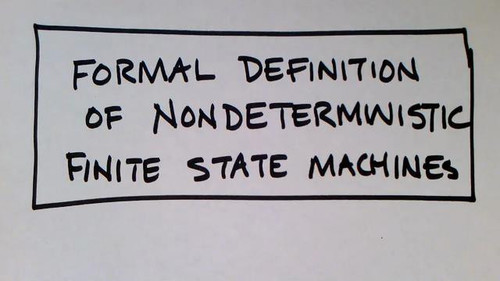 FORMAL DEFINITION
OF NONDETERMINISTIC
FINITE STATE MACHINES